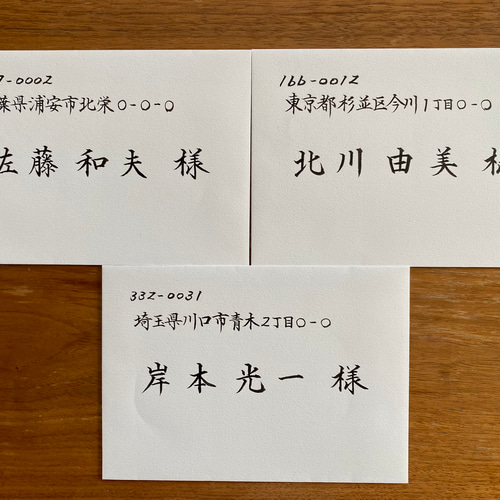 7-0002
葉県浦安市北栄0-0-0
佐藤 和夫 様
166-0012
東京都杉並区今川1丁目0-0
北川 由美 様
332-0031
埼玉県川口市青木2丁目0-0
岸本 光一 様